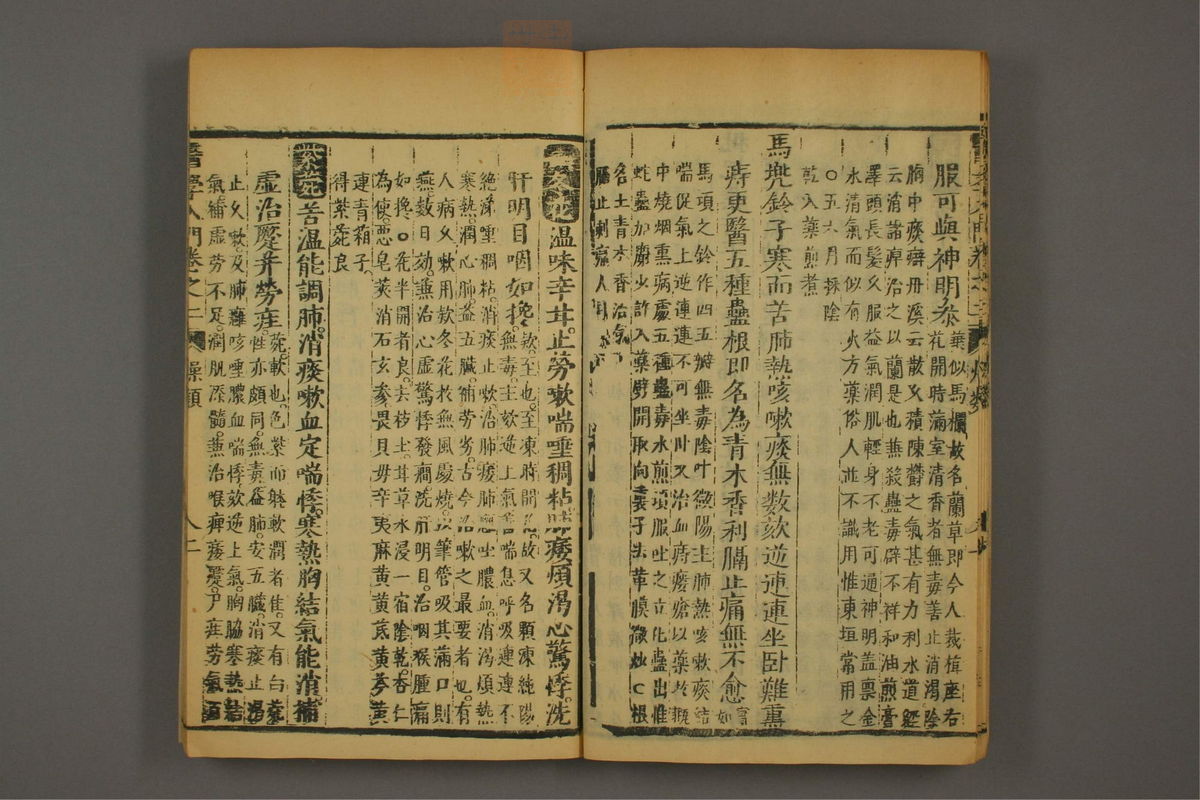 服可與神明叅
葉似馬欄故名蘭草即今人栽植座右
花開時滿室清香者無毒善止消渴除
胸中痰癖丹溪云散久積陳欝之氣甚有力利水道經
云消諸痺治之以蘭是也兼殺蟲毒辟不祥和油煎膏
澤頭長髮久服益氣潤肌輕身不老可通神明盖禀金
水清氣而似有火方藥俗人並不識用惟東垣常用之
○五六月採陰
乾入藥煎煮
馬兠鈴子寒而苦肺熱咳嗽痰無数欬逆連連坐卧難熏
痔更醫五種蠱根即名為青木香利膈止痛無不愈
馬項之鈴作四五瓣無毒陰中微陽主肺熱咳嗽痰結
喘促氣上逆連連不可坐卧又治血痔瘻瘡以藥於瓶
中燒烟熏病處五種蠱毒水煎頓服吐之立化蠱出惟
蛇蠱加麝少許入藥劈開取向裏子去革膜微炒○根
名土青木香治氣
膈止刺
温味辛甘止勞嗽喘唾稠粘肺痿煩渴心驚悸洗
肝明目咽如攙
欵至也至凍時開花故又名顆凍純陽
無毒主欬逆上氣善喘息呼吸連連不
絶涕唾稠粘消痰止嗽治肺痿肺癰吐膿血消渴煩熱
寒熱潤心肺益五臟補劳劣古今治嗽之最要者也有
人病久嗽用欵冬花於無風處燒以筆管吸其滿口則
嚥数日効兼治心虚驚悸發癎洗肝明目治咽喉腫痛
如攙○花半開者良去枝土甘草水浸一宿陰乾杏仁
為使惡皂莢消石玄參畏貝毋辛夷麻黄黄芪黄芩黄
連青箱子
得紫菀良
紫菀苦温能調肺消痰嗽血定喘悸寒熱胸結氣能消補
虚治躄并勞疰
菀軟也色紫而軟潤者佳又有白菀
性亦頗同無毒益肺安五臟消痰止渴
止久嗽及肺癰咳唾膿血喘悸欬逆上氣胸脇寒熱結
氣補虚劳不足潤肌添髓兼治喉痺痿躄尸疰劳氣
醫學入門卷之二